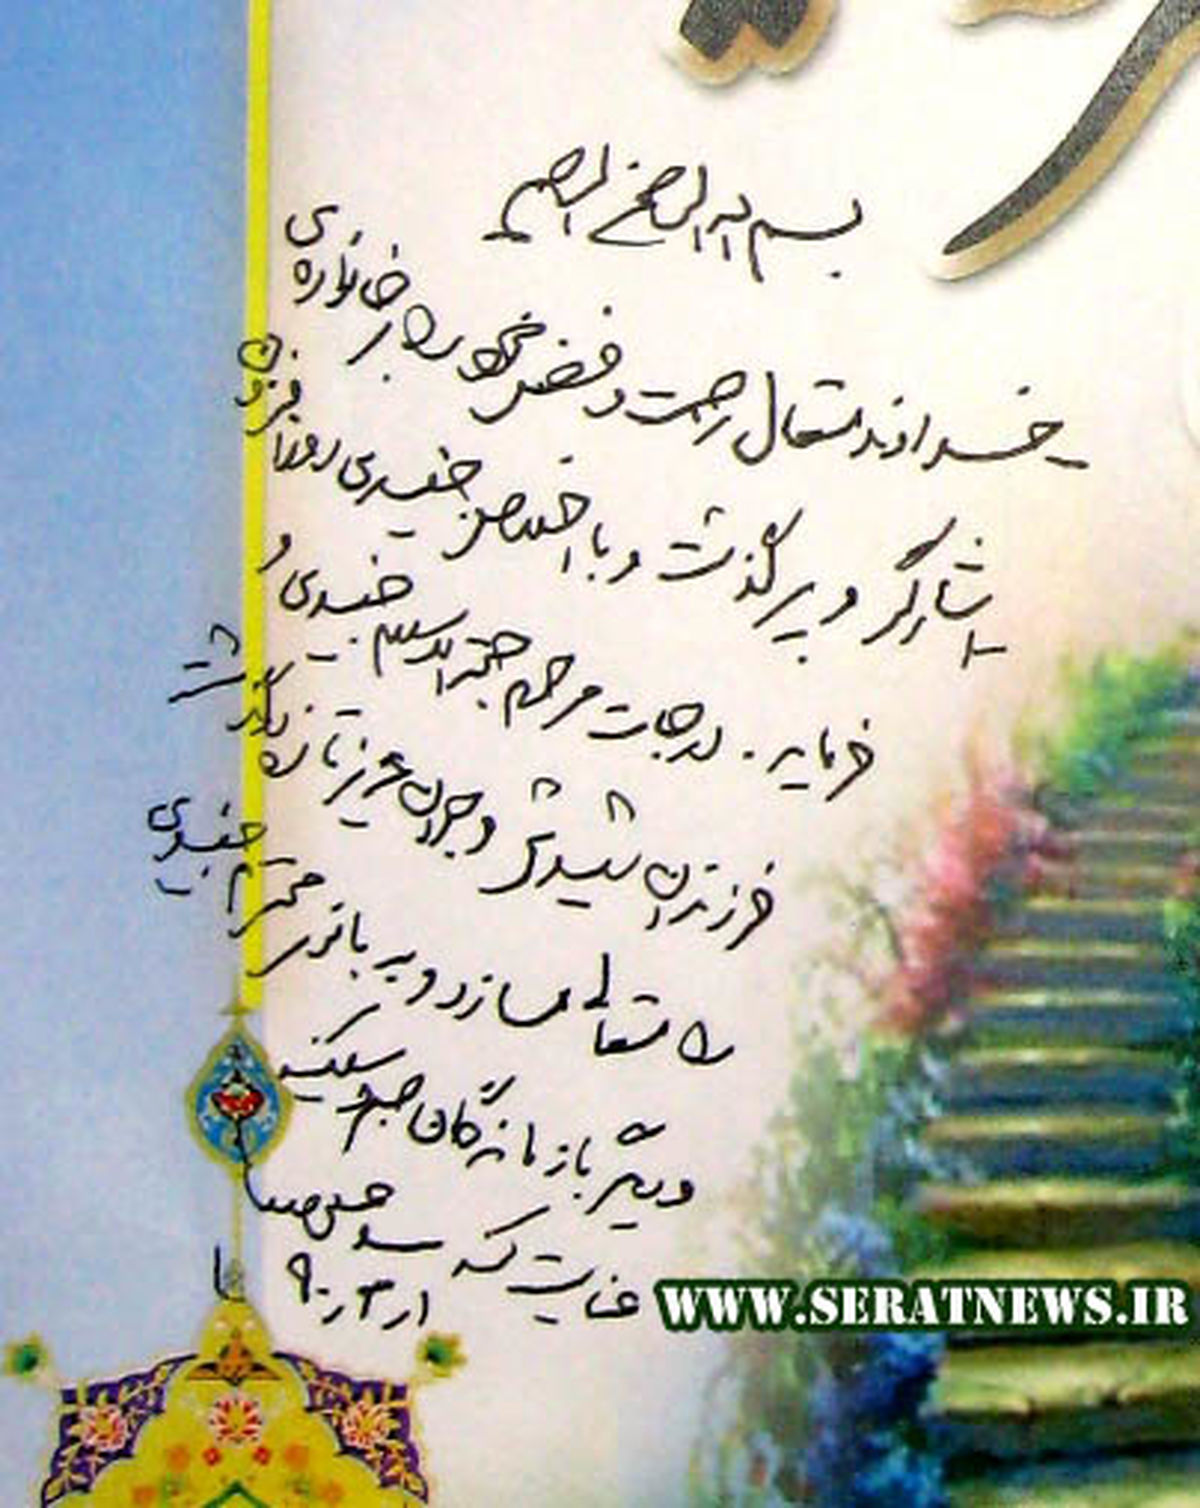 بسم الله الرحمن الرحیم
خداوند متعال رحمت و فضل خود را بر خانواده‌ی
ایثارگر و پر گذشت و با اخلاص جنیدی روزافزون
فرماید. درجات مرحوم حجة الاسلام جنیدی و
فرزندان شهیدش و جوان عزیز تازه درگذشته
را متعالی سازد و به بانوی محترم جنیدی
و دیگر بازماندگان صبر و سکینه
عنایت کند سید
۹۰٫۳٫۱
WWW.SERATNEWS.IR